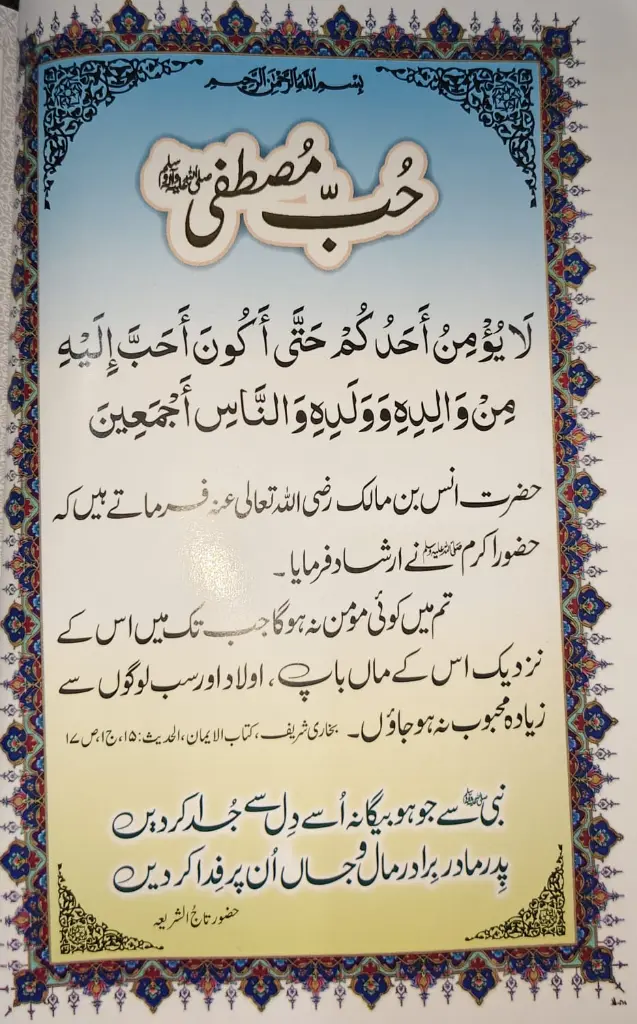 بِسْمِ اللهِ الرَّحْمٰنِ الرَّحِيْمِ
حُبِّ مُصطفٰی ﷺ
لَا يُؤْمِنُ أَحَدُكُمْ حَتَّى أَكُونَ أَحَبَّ إِلَيْهِ
مِنْ وَالِدِهِ وَوَلَدِهِ وَالنَّاسِ أَجْمَعِينَ
حضرت انس بن مالک رضی اللہ تعالی عنہ فرماتے ہیں کہ
حضور اکرم ﷺ نے ارشاد فرمایا۔
تم میں کوئی مومن نہ ہوگا جب تک میں اس کے
نزدیک اس کے ماں باپ، اولاد اور سب لوگوں سے
زیادہ محبوب نہ ہو جاؤں۔ بخاری شریف، کتاب الایمان، الحدیث: ۱۵، ج۱، ص ۱۷
نبی ﷺ سے جو ہو بیگانہ اُسے دِل سے جُدا کر دیں
پِدر مادر برادر مال و جاں اُن پر فِدا کر دیں
حضور تاجُ الشریعہ